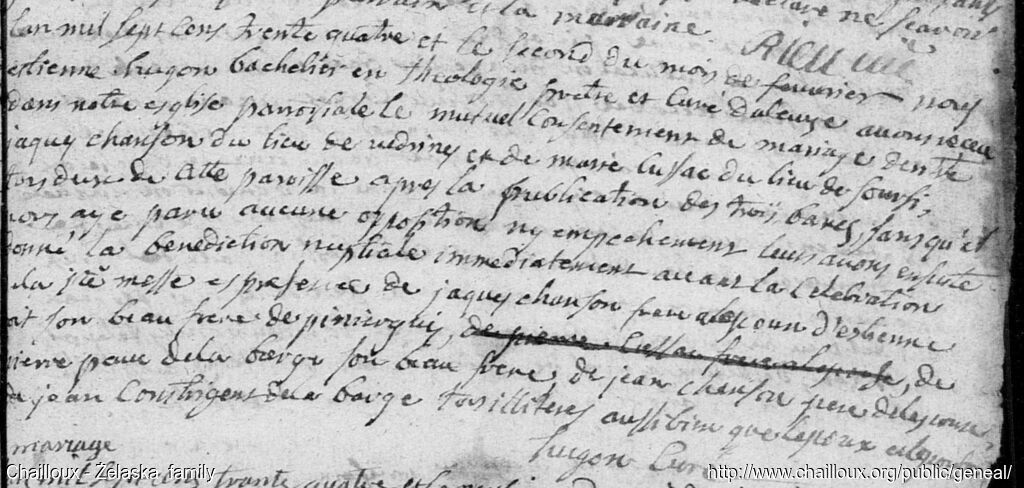 parrain et la marraine ne scavoir
Rieu curé
L'an mil sept cens trente quatre et le second du mois de feuvrier nous
estienne hugon bachelier en theologie pretre et curé daleuze avons receu
dans notre esglise parroissiale le mutuel consentement de mariage dentre
jaques chanson du lieu de vedrines et de marie cussac du lieu de soursi,
tous deux de cette paroisse apres la publication des trois bancs, sans qu'il
nous aye paru aucune opposition ny empechement leurs avons ensuite
donné la benediction nuptiale immediatement avant la celebration
de la ste messe es presences de jaques chanson frere a lespoux d'estienne
son beau frere de pinierques, de pierre cussac frere a lespouse, de
pierre pave de la barge son beau frere, de jean chanson pere
de jean de la barge tous illiteres aussi bien que lepoux
hugon curé
mariage
trente quatre et le
Chailloux - Żelaska family
http://www.chailloux.org/public/geneal/